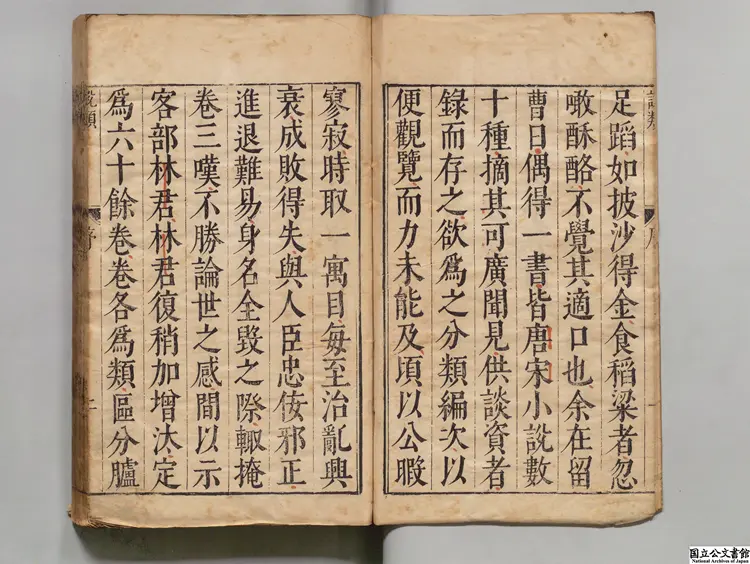 足蹈如披沙得金食稻粱者忽
噉酥酪不覺其適口也余在留
曹日偶得一書皆唐宋小説數
十種摘其可廣聞見供談資者
録而存之欲爲之分類編次以
便觀覽而力未能及頃以公暇
寥寂時取一寓目每至治亂興
衰成敗得失與人臣忠佞邪正
進退難易身名全毀之際輙掩
卷三嘆不勝論世之感間以示
客部林君林君復稍加增汰定
爲六十餘卷卷各爲類區分臚
説類
序
国立公文書館
National Archives of Japan